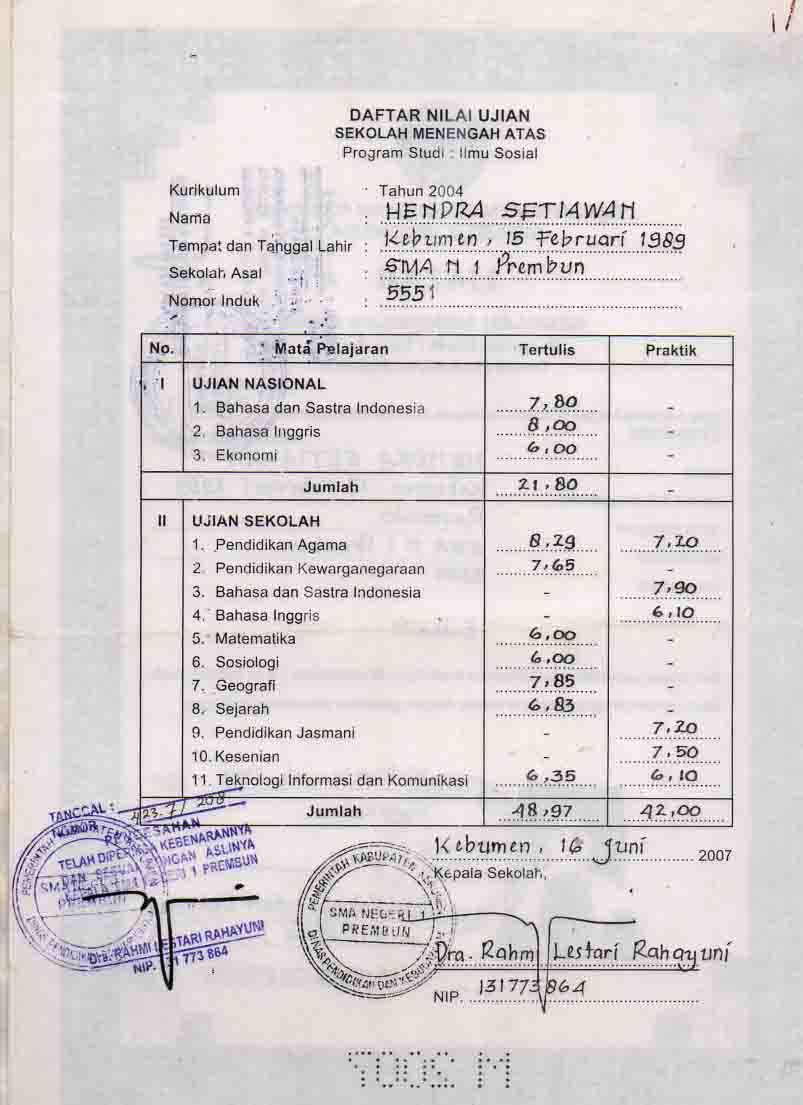 DAFTAR NILAI UJIAN
SEKOLAH MENENGAH ATAS
Program Studi : Ilmu Sosial
Kurikulum : Tahun 2004
Nama : HENDRA SETIAWAN
Tempat dan Tanggal Lahir : Kebumen, 15 Februari 1989
Sekolah Asal : SMA N 1 Prembun
Nomor Induk : 5551
No. Mata Pelajaran Tertulis Praktik
I UJIAN NASIONAL
1. Bahasa dan Sastra Indonesia 7,80 -
2. Bahasa Inggris 8,00 -
3. Ekonomi 6,00 -
Jumlah 21,80 -
II UJIAN SEKOLAH
1. Pendidikan Agama 8,29 7,20
2. Pendidikan Kewarganegaraan 7,65 -
3. Bahasa dan Sastra Indonesia - 7,90
4. Bahasa Inggris - 6,10
5. Matematika 6,00 -
6. Sosiologi 6,00 -
7. Geografi 7,85 -
8. Sejarah 6,83 -
9. Pendidikan Jasmani - 7,20
10. Kesenian - 7,50
11. Teknologi Informasi dan Komunikasi 6,35 6,10
Jumlah 48,97 42,00
Kebumen, 16 Juni 2007
Kepala Sekolah,
PEMERINTAH KABUPATEN
SMA NEGERI 1
PREMBUN
DINAS PENDIDIKAN DAN
Dra. Rahmi Lestari Rahayuni
NIP. 131773864
TANGGAL :
NOMOR
TELAH DIPERIKSA KEBENARANNYA
DAN SESUAI DENGAN ASLINYA
1 PREMBUN
Dra. RAHMI LESTARI RAHAYUNI
NIP. 131 773 864